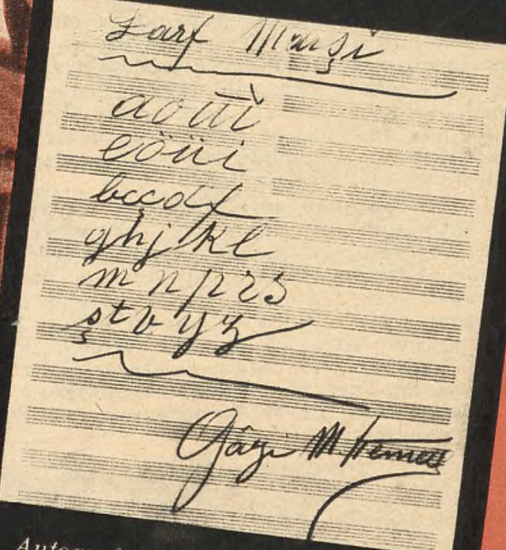 Harf Marşı
aouı
eöüi
bcçdf
ghjkl
mnprs
ştvyz
Gâzi M Kemal